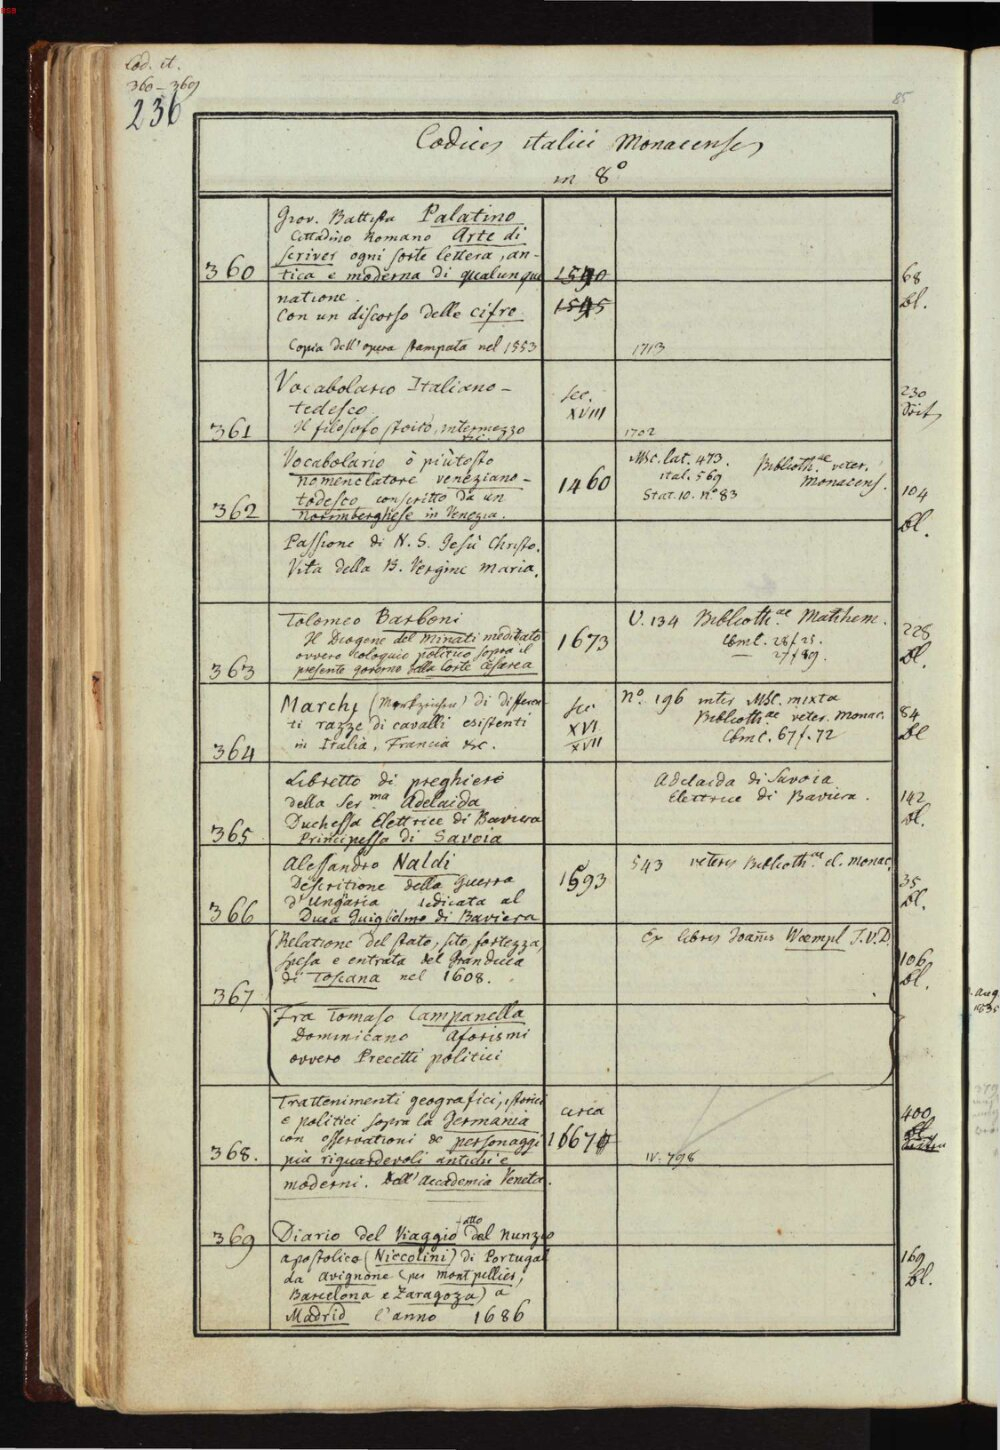 Cod. it.
360-369
236
85
Codices italici Monacenses
in 8°
360
Giov. Battista Palatino
Cittadino Romano Arte di
scriver ogni sorte lettera, an-
tica e moderna di qualunque
natione.
Con un discorso delle cifre
Copia dell'opera stampata nel 1553
1540
1545
1713
68
Bl.
361
Vocabolario Italiano-
tedesco
Il filosofo stoito, intermezzo
etc.
sec.
XVIII
1702
230
362
Vocabolario ò più tosto
nomenclatore veneziano-
todesco conscritto da un
Norimberghese in Venezia.
Passione di N. S. Jesù Christo.
Vita della B. Vergine Maria.
1460
Msc. lat. 473.
ital. 569
Stat. 10. n° 83
Biblioth.ae veter.
Monacens.
104
Bl.
363
Tolomeo Barboni
Il Diogene del Minati meditato
ovvero coloquio politico sopra il
presente governo della Corte Cesarea
1673
V. 134 Biblioth.ae Mathem.
Cbm C. 28 f 25.
— 27 f 89.
228
Bl.
364
Marchj (Markzeichen) di differen-
ti razze di cavalli esistenti
in Italia, Francia &c.
sec
XVI
XVII
N° 196 inter Msc. mixta
Biblioth.ae veter. Monac.
Cbm C. 67 f. 72
84
Bl
365
Libretto di preghiere
della Ser.ma Adelaida
Duchessa Elettrice di Baviera
Principessa di Savoia
Adelaida di Savoia
Elettrice di Baviera.
142
Bl.
366
Alessandro Naldi
Descritione della guerra
d'Ungaria dedicata al
Duca Guiglielmo di Baviera
1593
543 veteris Biblioth.ae el. Monac.
35
Bl.
367
Relatione del stato, sito, fortezza,
spesa e entrata del Granduca
di Toscana nel 1608.
Ex libris Joañis Woempl J.V.D
106
Bl.
Fra Tomaso Campanella
Dominicano Aforismi
ovvero Precetti politici
368.
Trattenimenti geografici, istorici
e politici sopra la Germania
con osservationi de personaggi
più riguardevoli antichi e
moderni. Dell'Accademia Veneta.
circa
1667
IV. 798
400
Bl
369
Diario del Viaggio fatto dal Nunzio
apostolico (Niccolini) di Portugal
da Avignone (per Montpellier,
Barcelona e Zaragoza) a
Madrid l'anno 1686
169
Bl.
Aug.
1835